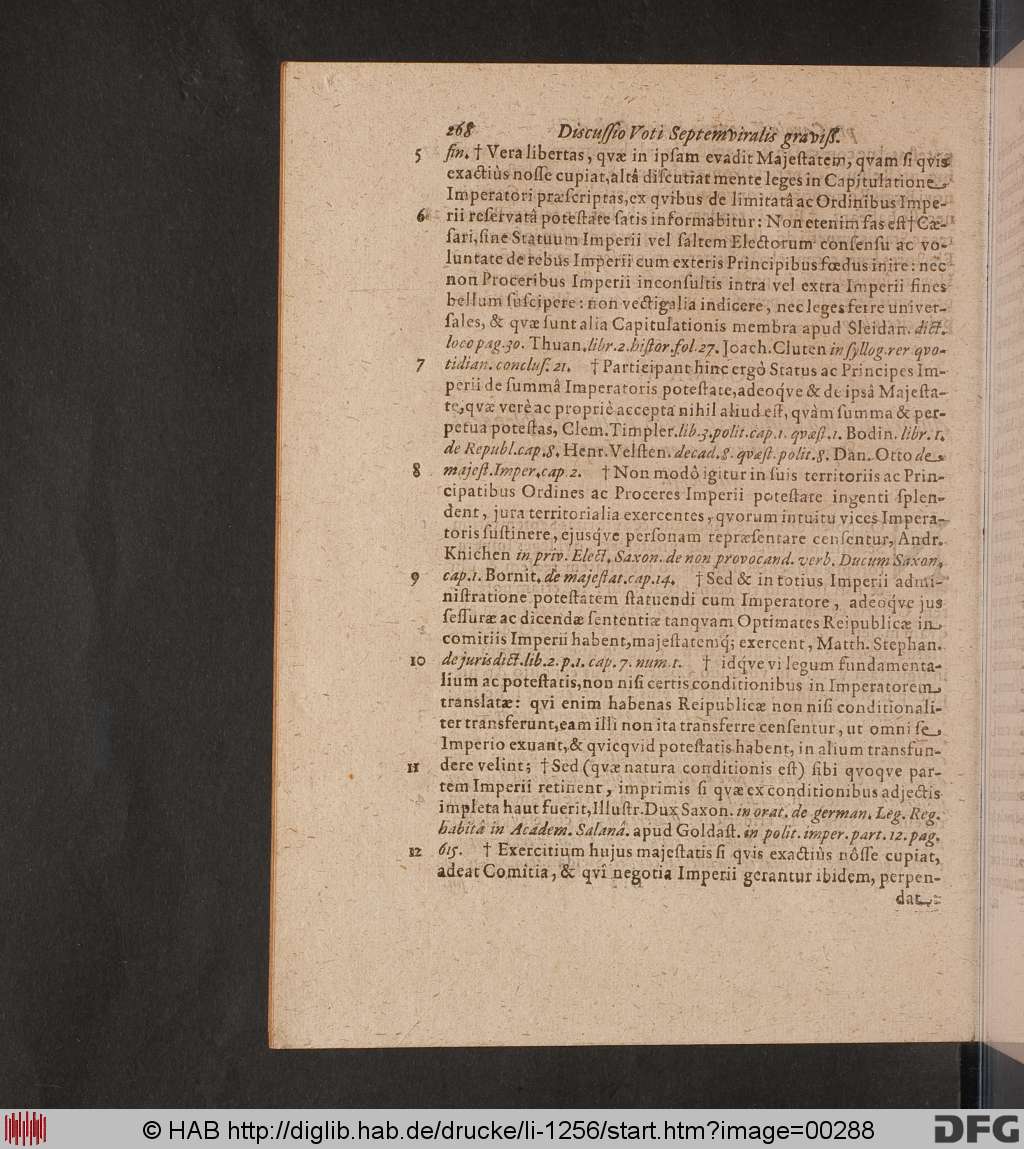 268 Discussio Voti Septemviralis graviss.
5 fin. † Vera libertas, qvæ in ipsam evadit Majestatem, qvam si qvis
exactiùs nosse cupiat, altâ discutiat mente leges in Capitulatione
Imperatori præscriptas, ex qvibus de limitatâ ac Ordinibus Impe-
6 rii reservatâ potestate satis informabitur: Non etenim fas est † Cæ-
sari, sine Statuum Imperii vel saltem Electorum consensu ac vo-
luntate de rebus Imperii cum exteris Principibus fœdus inire: nec
non Proceribus Imperii inconsultis intra vel extra Imperii fines
bellum suscipere: non vectigalia indicere, nec leges ferre univer-
sales, & qvæ sunt alia Capitulationis membra apud Sleidan. dict.
loco pag. 30. Thuan. libr. 2. histor. fol. 27. Joach. Cluten in syllog. rer quo-
7 tidian. conclus. 21. † Participant hinc ergò Status ac Principes Im-
perii de summâ Imperatoris potestate, adeoqve & de ipsâ Majesta-
te, qvæ verè ac propriè accepta nihil aliud est, qvàm summa & per-
petua potestas, Clem. Timpler. lib. 3. polit. cap. 1. quæst. 1. Bodin. libr. 1.
de Republ. cap. 8. Henr. Velsten. decad. 8. quæst. polit. 8. Dan. Otto de
8 majest. Imper. cap. 2. † Non modò igitur in suis territoriis ac Prin-
cipatibus Ordines ac Proceres Imperii potestate ingenti splen-
dent, jura territorialia exercentes, qvorum intuitu vices Impera-
toris sustinere, ejusqve personam repræsentare censentur, Andr.
Knichen in priv. Elect. Saxon. de non provocand. verb. Ducum Saxon.
9 cap. 1. Bornit. de majestat. cap. 14. † Sed & in totius Imperii admi-
nistratione potestatem statuendi cum Imperatore, adeoqve jus
sessuræ ac dicendæ sententiæ tanqvam Optimates Reipublicæ in
comitiis Imperii habent, majestatemq; exercent, Matth. Stephan.
10 de jurisdict. lib. 2. p. 1. cap. 7. num. 1. † idqve vi legum fundamenta-
lium ac potestatis, non nisi certis conditionibus in Imperatorem
translatæ: qvi enim habenas Reipublicæ non nisi conditionali-
ter transferunt, eam illi non ita transferre censentur, ut omni se
Imperio exuant, & qvicqvid potestatis habent, in alium transfun-
11 dere velint; † Sed (qvæ natura conditionis est) sibi qvoqve par-
tem Imperii retinent, imprimis si qvæ ex conditionibus adjectis
impleta haut fuerit, Illustr. Dux Saxon. in orat. de german. Leg. Reg.
habitâ in Academ. Salanâ. apud Goldast. in polit. imper. part. 12. pag.
12 615. † Exercitium hujus majestatis si qvis exactiùs nôsse cupiat,
adeat Comitia, & qvî negotia Imperii gerantur ibidem, perpen-
dat,
© HAB http://diglib.hab.de/drucke/li-1256/start.htm?image=00288
DFG